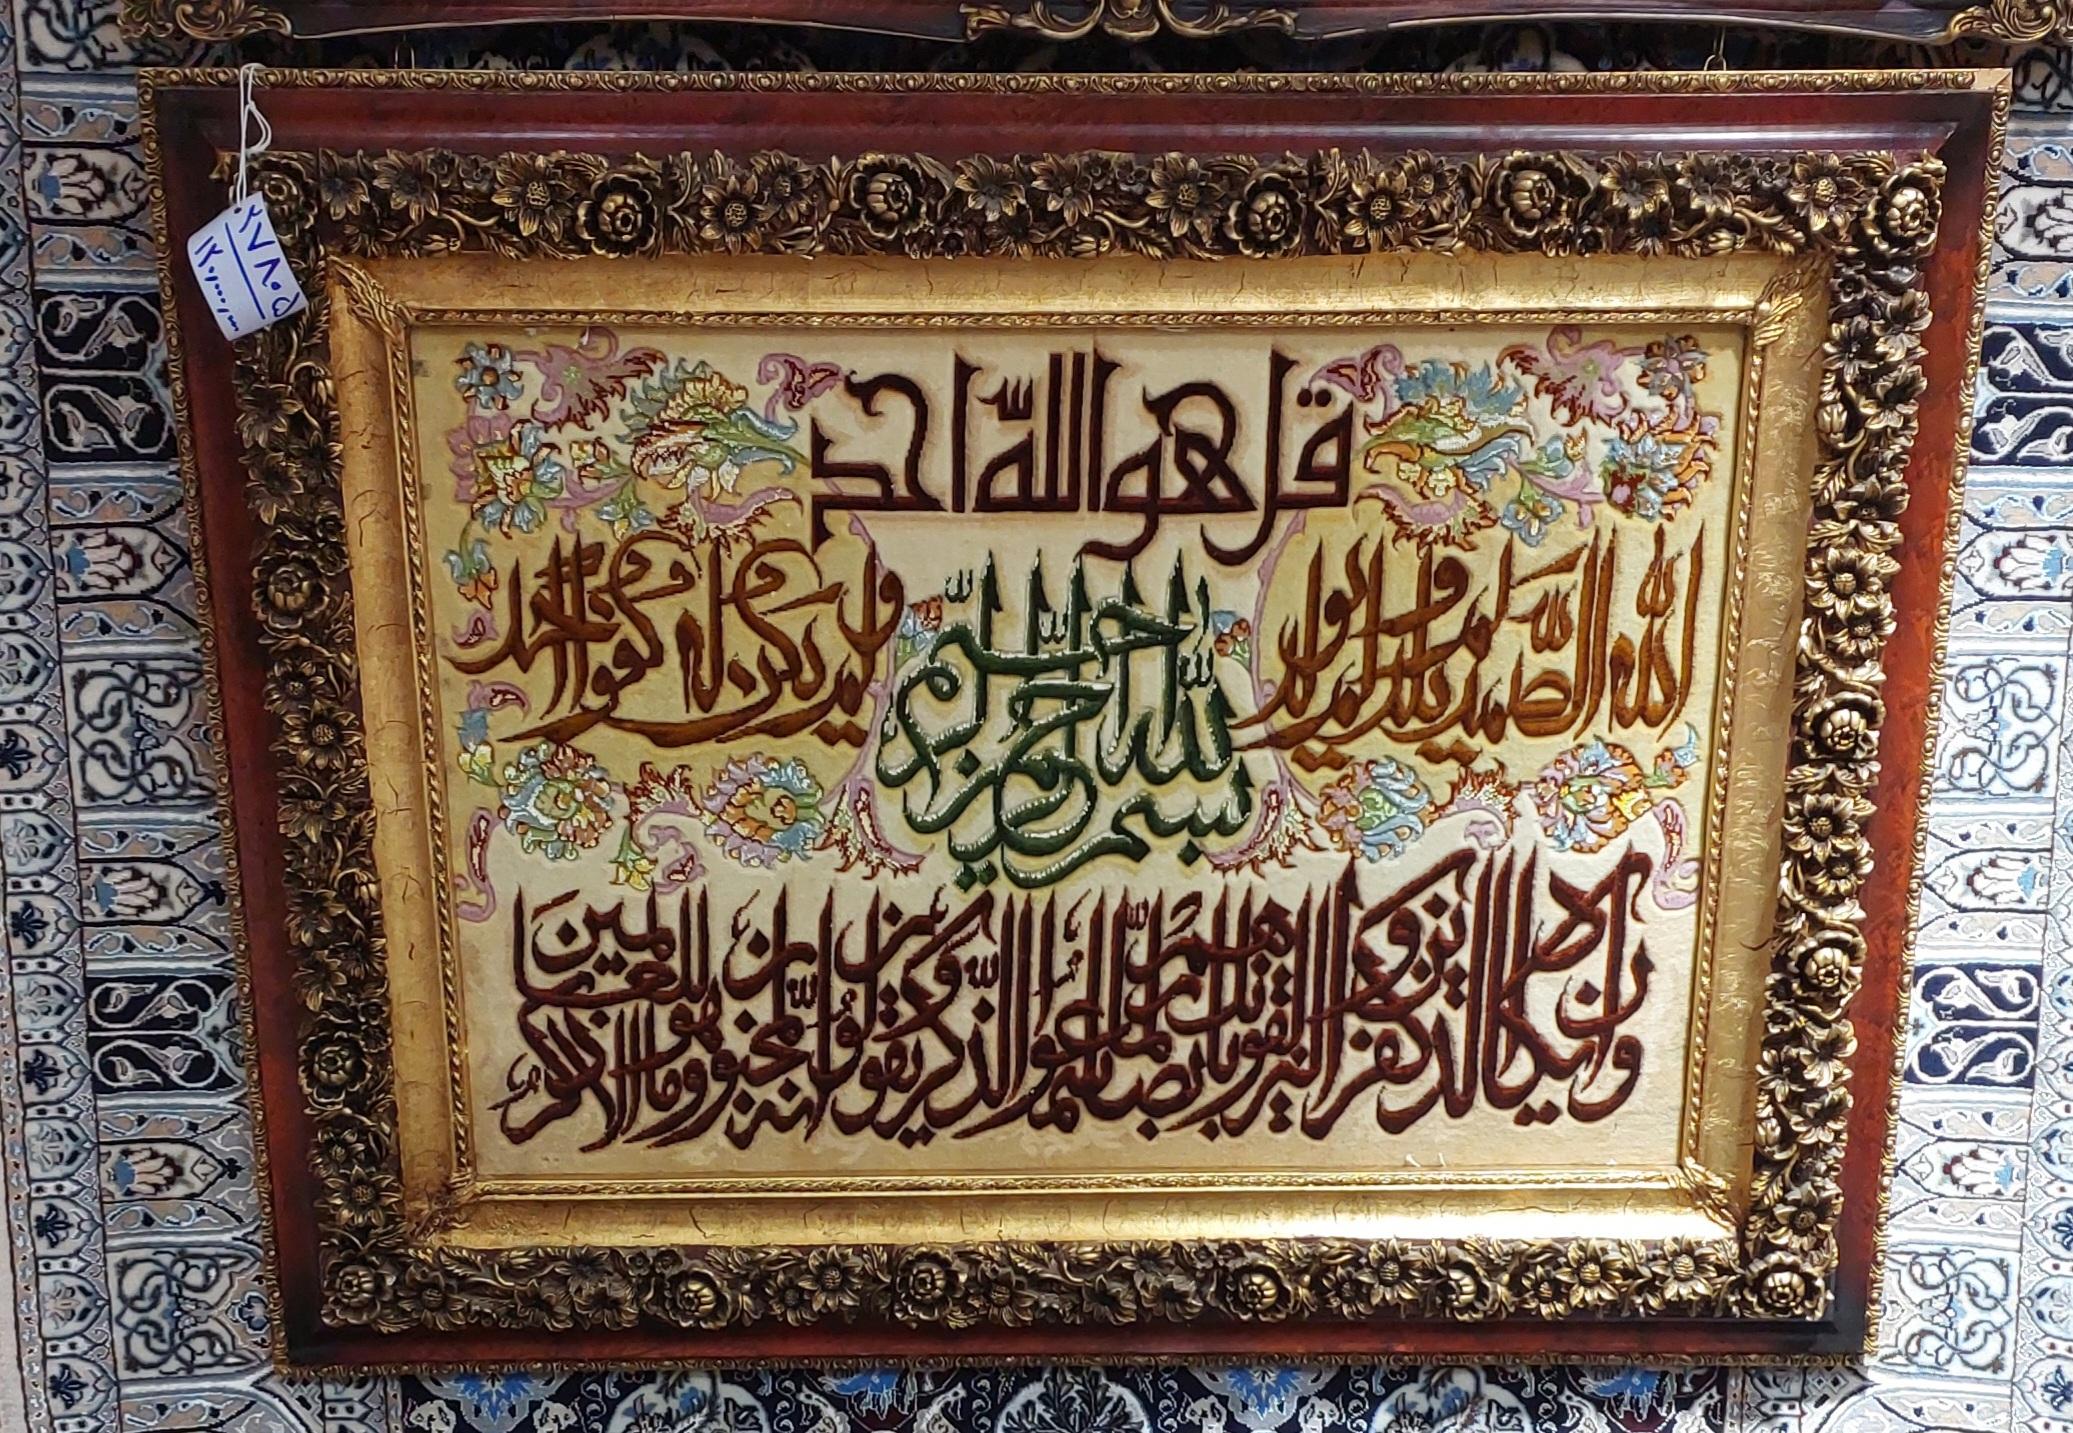 قل هو الله احد
الله الصمد لم يلد ولم يولد
ولم يكن له كفوا احد
بسم الله الرحمن الرحيم
وان يكاد الذين كفروا ليزلقونك بابصارهم لما سمعوا الذكر
ويقولون انه لمجنون وما هو الا ذكر للعالمين